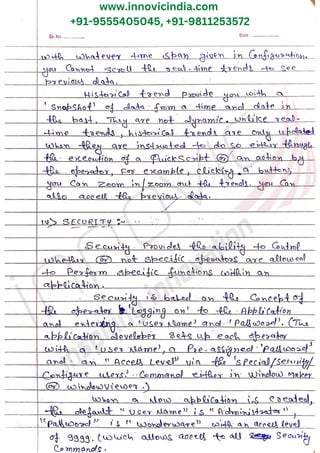 www.innovicindia.com
+91-9555405045, +91-9811253572
Ex. No.
Date
with whatever time span given in Configuration.
you Cannot Scroll the real-time trends to see
previous data.
Historical trend provide you with a
'Snapshot' of data from a time and date in
the past. They are not dynamic. Unlike real-
-time trends, historical trends are only updated
when they are instructed to do so either through
the execution of a QuickScript or an action by
the operator, For example, clicking a button,
you Can zoom in/zoom out the trends. you Can
also access the previous data.
IV> SECURITY :-
Security Provides the ability to Control
whether or not specific operators are allowed
to Perform specific functions within an
application.
Security is based on the Concept of
the operator 'Logging on' to the Application
and entering a 'User Name' and 'Password'. (The
application developer sets up each operator
with a 'User Name', a Pre-assigned 'Password'
and an "Access Level" via the 'Special/Security/
Configure Users.' Command either in Window Maker
or WindowViewer.)
When a New application is created,
the default "User Name" is "Administrator",
"Password" is "Wonderware" with an access level
of 9999. (Which allows access to all Security
Commands.